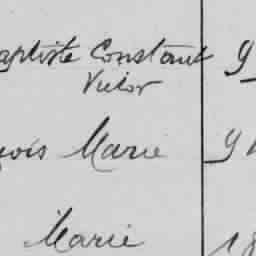 aptiste Constant
Victor
çois Marie
Marie